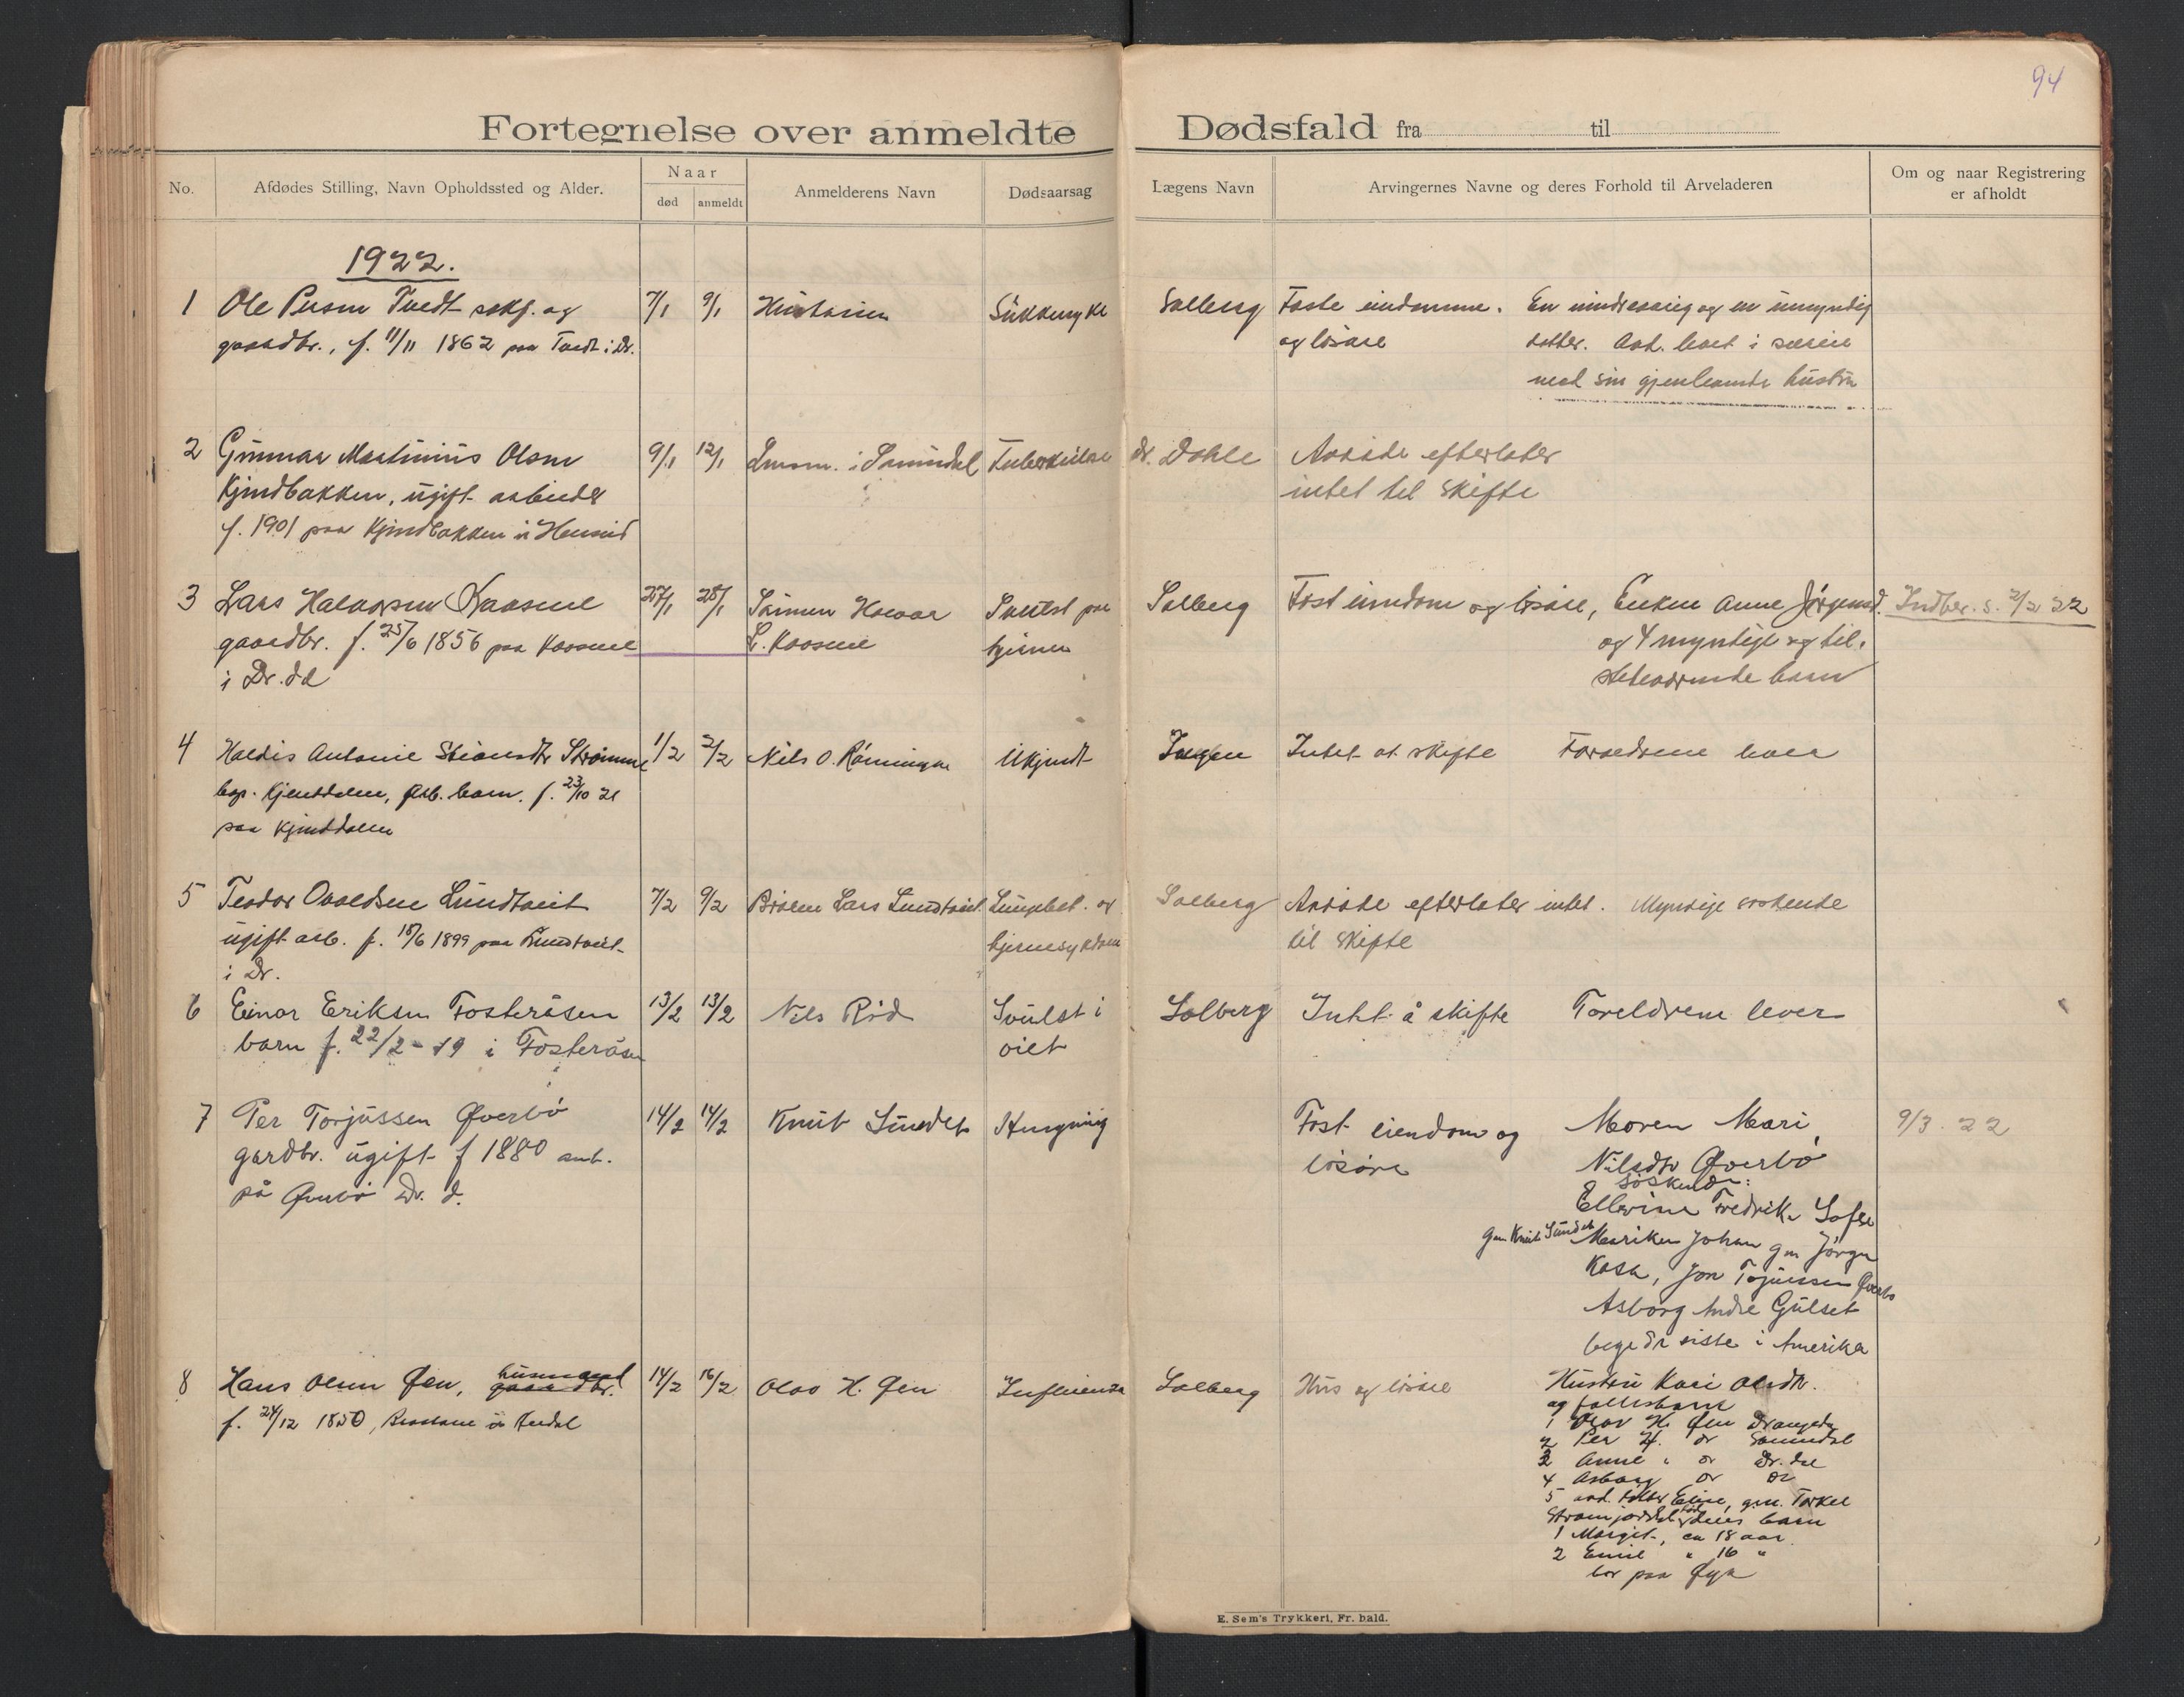 94
Fortegnelse over anmeldte Dødsfald fra til
No. Afdødes Stilling, Navn Opholdssted og Alder. Naar død anmeldt Anmelderens Navn Dødsaarsag Lægens Navn Arvingernes Navne og deres Forhold til Arveladeren Om og naar Registrering er afholdt
1922.
1 Ole Tvedt og 7/1 9/1 Hustruen Sukkersyke Solberg Faste eiendomme. En mindreaarig og en umyndig
gaardbr., f. 11/11 1862 paa Tvedt i Dr. og løsøre datter. Avd. levet i særeie
med sin gjenlevende hustru
2 Gunnar Martinius Olsen 9/1 12/1 Lensm. i Sannidal Tuberkulose Dr. Dahle Avdøde efterlater
Kjindbakken, ugift arbeider intet til skifte
f. 1901 paa Kjindbakken i
3 Lars Halvorsen Kaasene 25/1 28/1 Sønnen Halvor Svulst paa Solberg Fast eiendom og løsøre, Enken Anne Jørgensd. Indber. s. 2/2 22
gaardbr. f. 25/6 1856 paa Kaasene L. Kaasene hjernen og 4 myndige og til.
i Dr.dal stedeværende barn
4 Haldis Antonie Strømme 1/2 2/2 Nils O. Rønningen Ukjendt Ingen Intet at skifte Forældrene lever
Kjenddalen, barn. f. 23/10 21
paa Kjenddalen
5 Teodor Ovaldsen Lundtveit 7/2 9/2 Broren Lars Lundtveit Lungebet. og Solberg Avdøde efterlater intet. Myndige søskende
ugift arb. f. 18/6 1899 paa Lundtveit hjernesykdom til skifte
i Dr.
6 Einar Eriksen Fosteråsen 13/2 13/2 Nils Rød Svulst i Solberg Intet å skifte Foreldrene lever
barn f. 22/2-19 i Fosteråsen
7 Per Torjussen Øverbø 14/2 14/2 Knut Sundet Hengning Fast eiendom og Moren Mari 9/3. 22
gardbr. ugift f 1880 løsøre Nilsdtr Øverbø
på Øverbø Dr. d. søskende:
Fredrik
gm Knut Sundet Johan gm Jørgen
Kåsa, Jon Torjussen Øverbø
Asborg Gulset
begge de siste i Amerika
8 Hans Olsen Øen, husmand gaardbr. 14/2 16/2 Olav H. Øen Influensa Solberg Hus og løsøre Hustru Kari Olsdtr.
f. 24/12 1850, og fællesbarn
1 Olav H. Øen Drangedal
2 Per H. do Sannidal
3 Anne " do Dr.dal
4 Asborg do do
5 avd. datter Elise, gm. Torkel
barn
1 Margit, ca 18 aar
2 Emil " 16 "
bor paa Øya
E. Sem's Trykkeri, Fr. hald.